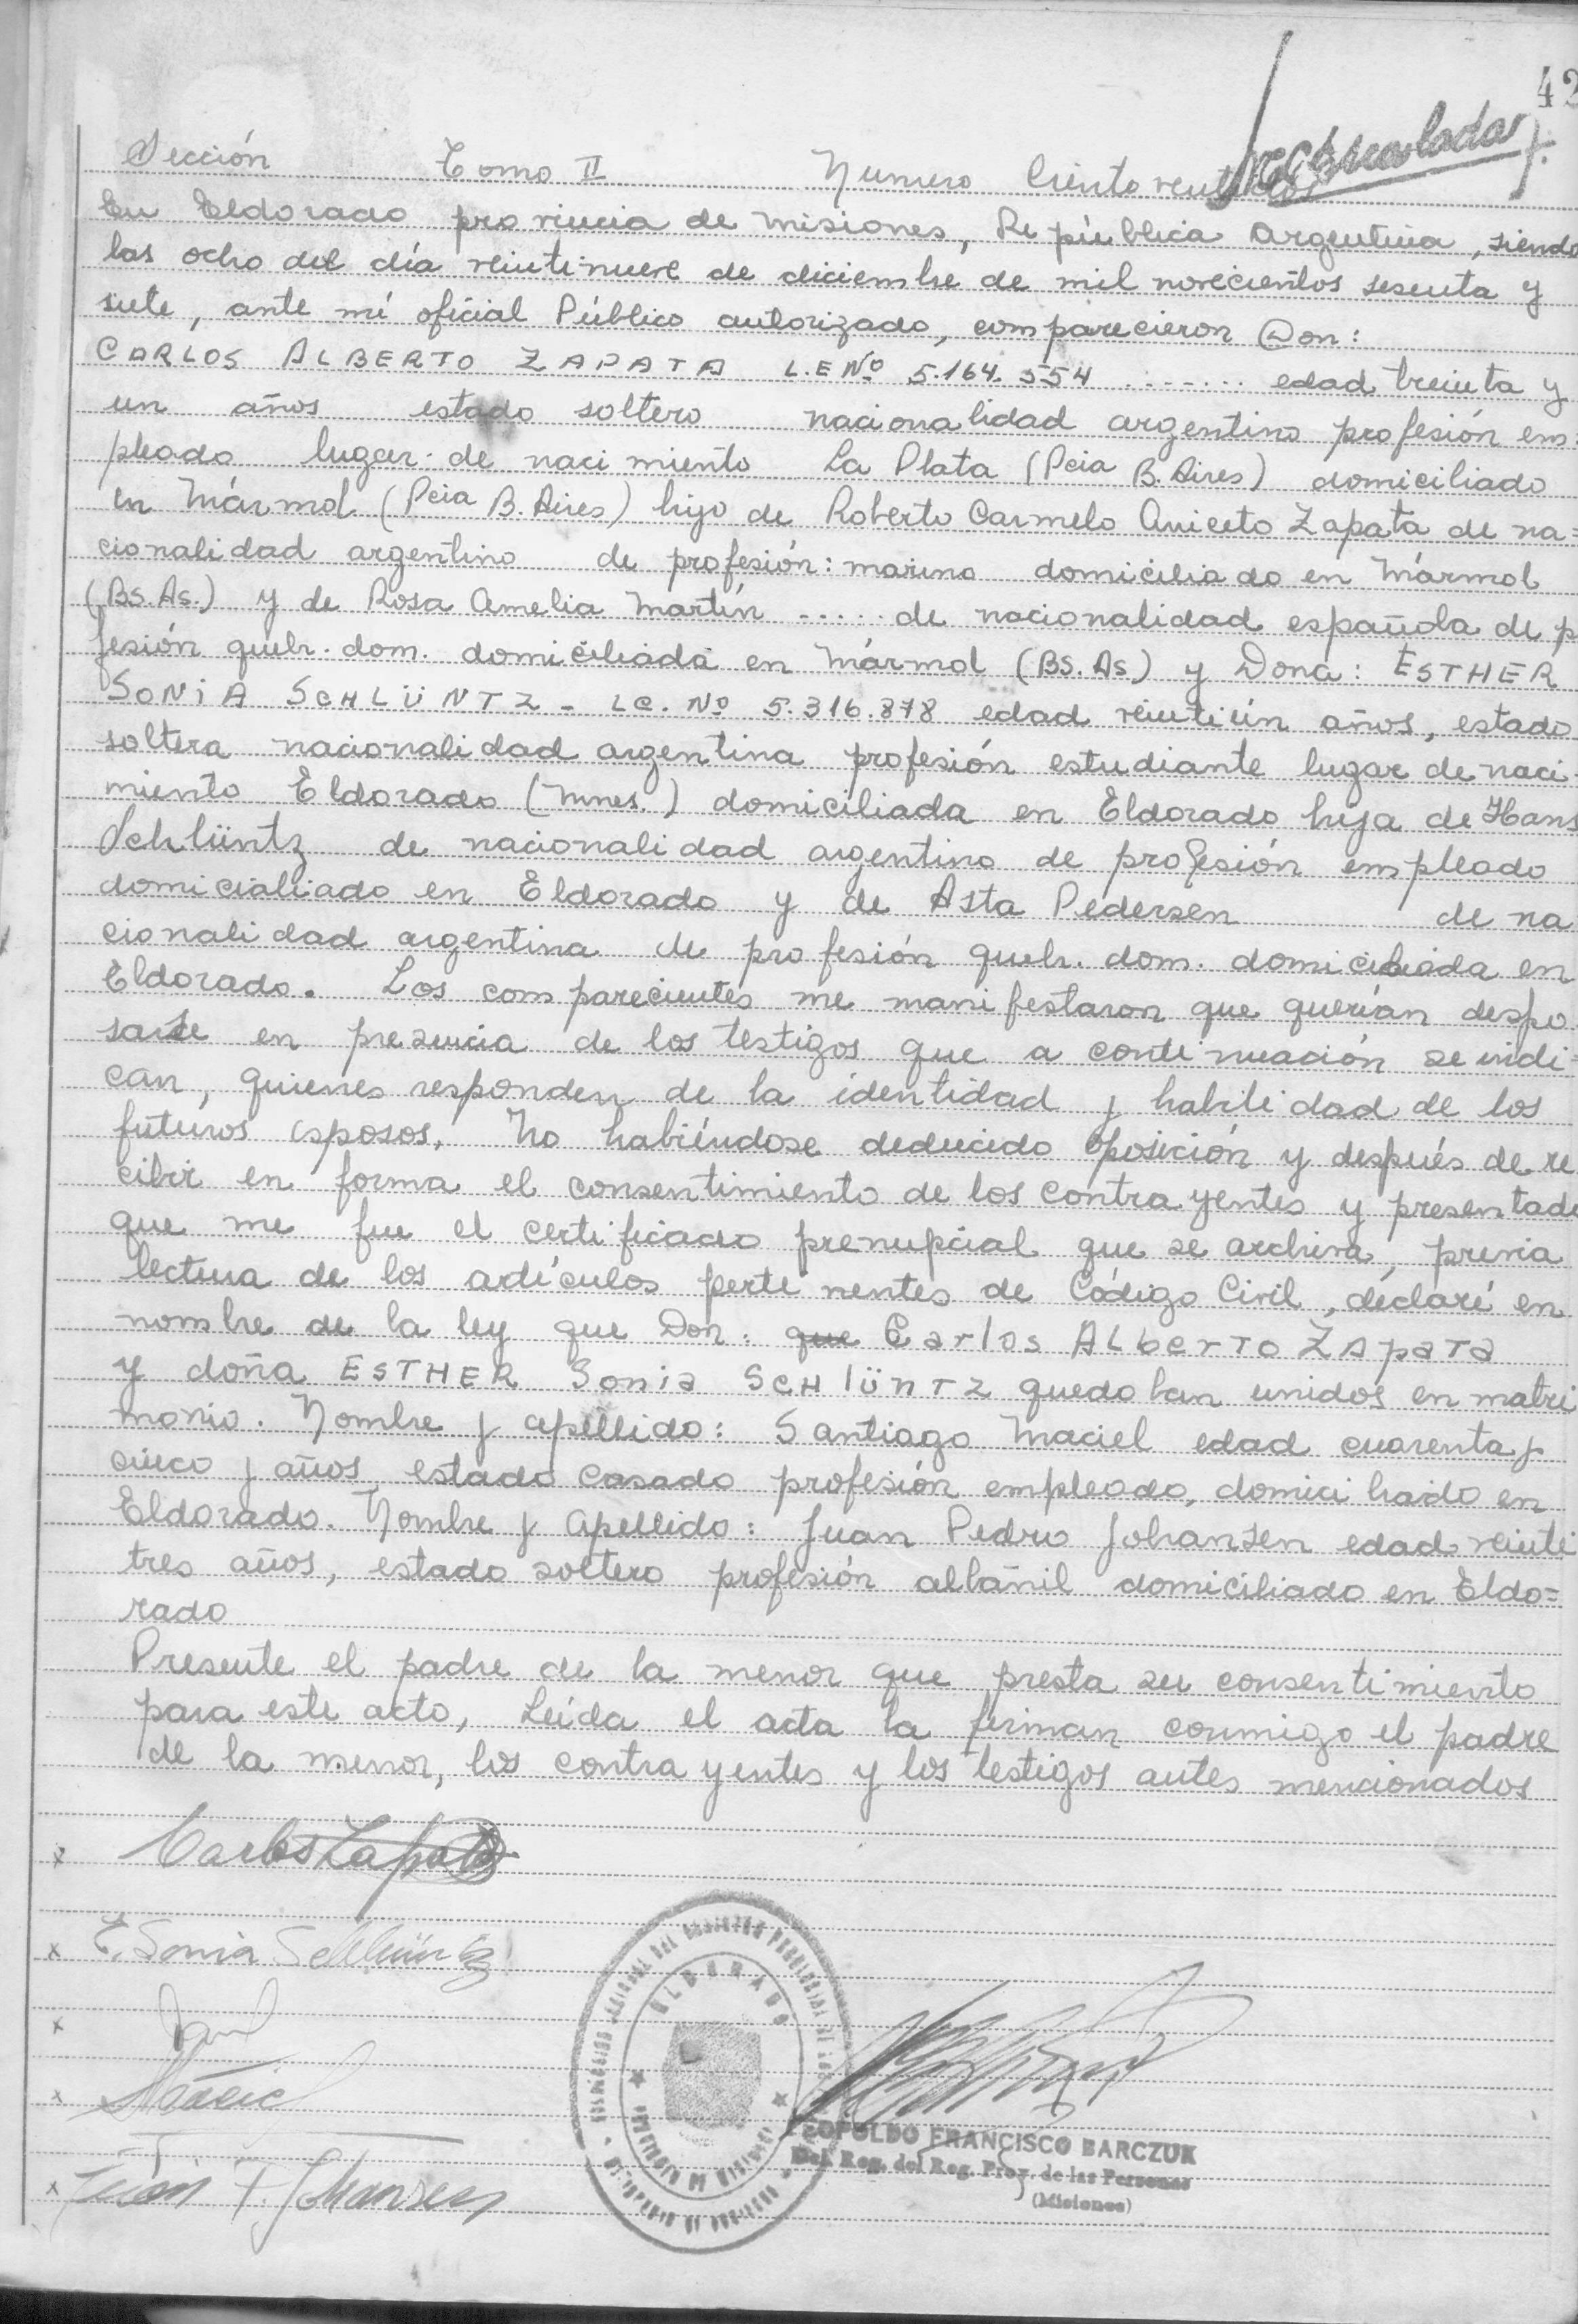 42
Mecanuladas
Sección Tomo II Numero Ciento veintidos
En Eldorado provincia de Misiones, República Argentina, siendo
las ocho del día veintinueve de diciembre de mil novecientos sesenta y
siete, ante mí oficial Público autorizado, comparecieron Don:
CARLOS ALBERTO ZAPATA L.E Nº 5.164.554 ....... edad treinta y
un años estado soltero nacionalidad argentino profesión em=
pleado lugar de nacimiento La Plata (Pcia B. Aires) domiciliado
en Mármol (Pcia B. Aires) hijo de Roberto Carmelo Aniceto Zapata de na=
cionalidad argentino de profesión: marino domiciliado en Mármol
(BS. As.) y de Rosa Amelia Martín ..... de nacionalidad española de p
fesión quehr. dom. domiciliada en Mármol (BS. As) y Dona: ESTHER
SONIA SCHLÜNTZ - LC. Nº 5.316.878 edad veintiún años, estado
soltera nacionalidad argentina profesión estudiante lugar de naci-
miento Eldorado (Mnes.) domiciliada en Eldorado hija de Hans
Schlüntz de nacionalidad argentino de profesión empleado
domicialiado en Eldorado y de Asta Pedersen de na
cionalidad argentina de profesión quehr. dom. domiciliada en
Eldorado. Los comparecientes me manifestaron que querían despo-
sarse en presencia de los testigos que a continuación se indi=
can, quienes responden de la identidad y habilidad de los
futuros esposos. No habiéndose deducido oposición y después de re
cibir en forma el consentimiento de los contrayentes y presentado
que me fue el certificado prenupcial que se archiva, previa
lectura de los artículos pertinentes de Código Civil, declaré en
nombre de la ley que Don: que Carlos ALbertO ZApaTa
y doña ESTHER Sonia SCHlünTZ quedaban unidos en matri
monio. Nombre y apellido: Santiago Maciel edad cuarenta y
cinco y años, estado casado profesión empleado, domiciliado en
Eldorado. Nombre y Apellido: Juan Pedro Johansen edad veinti
tres años, estado soltero profesión albañil domiciliado en Eldo=
rado
Presente el padre de la menor que presta su consentimiento
para este acto, Leída el acta la firman conmigo el padre
de la menor, los contrayentes y los testigos antes mencionados
x Carlos Zapata
x E. Sonia Schlüntz
x
x Maciel
x Juan P. Johansen
ELDORADO
LEOPOLDO FRANCISCO BARCZUK
Del. Reg. del Reg. Prov. de las Personas
(Misiones)